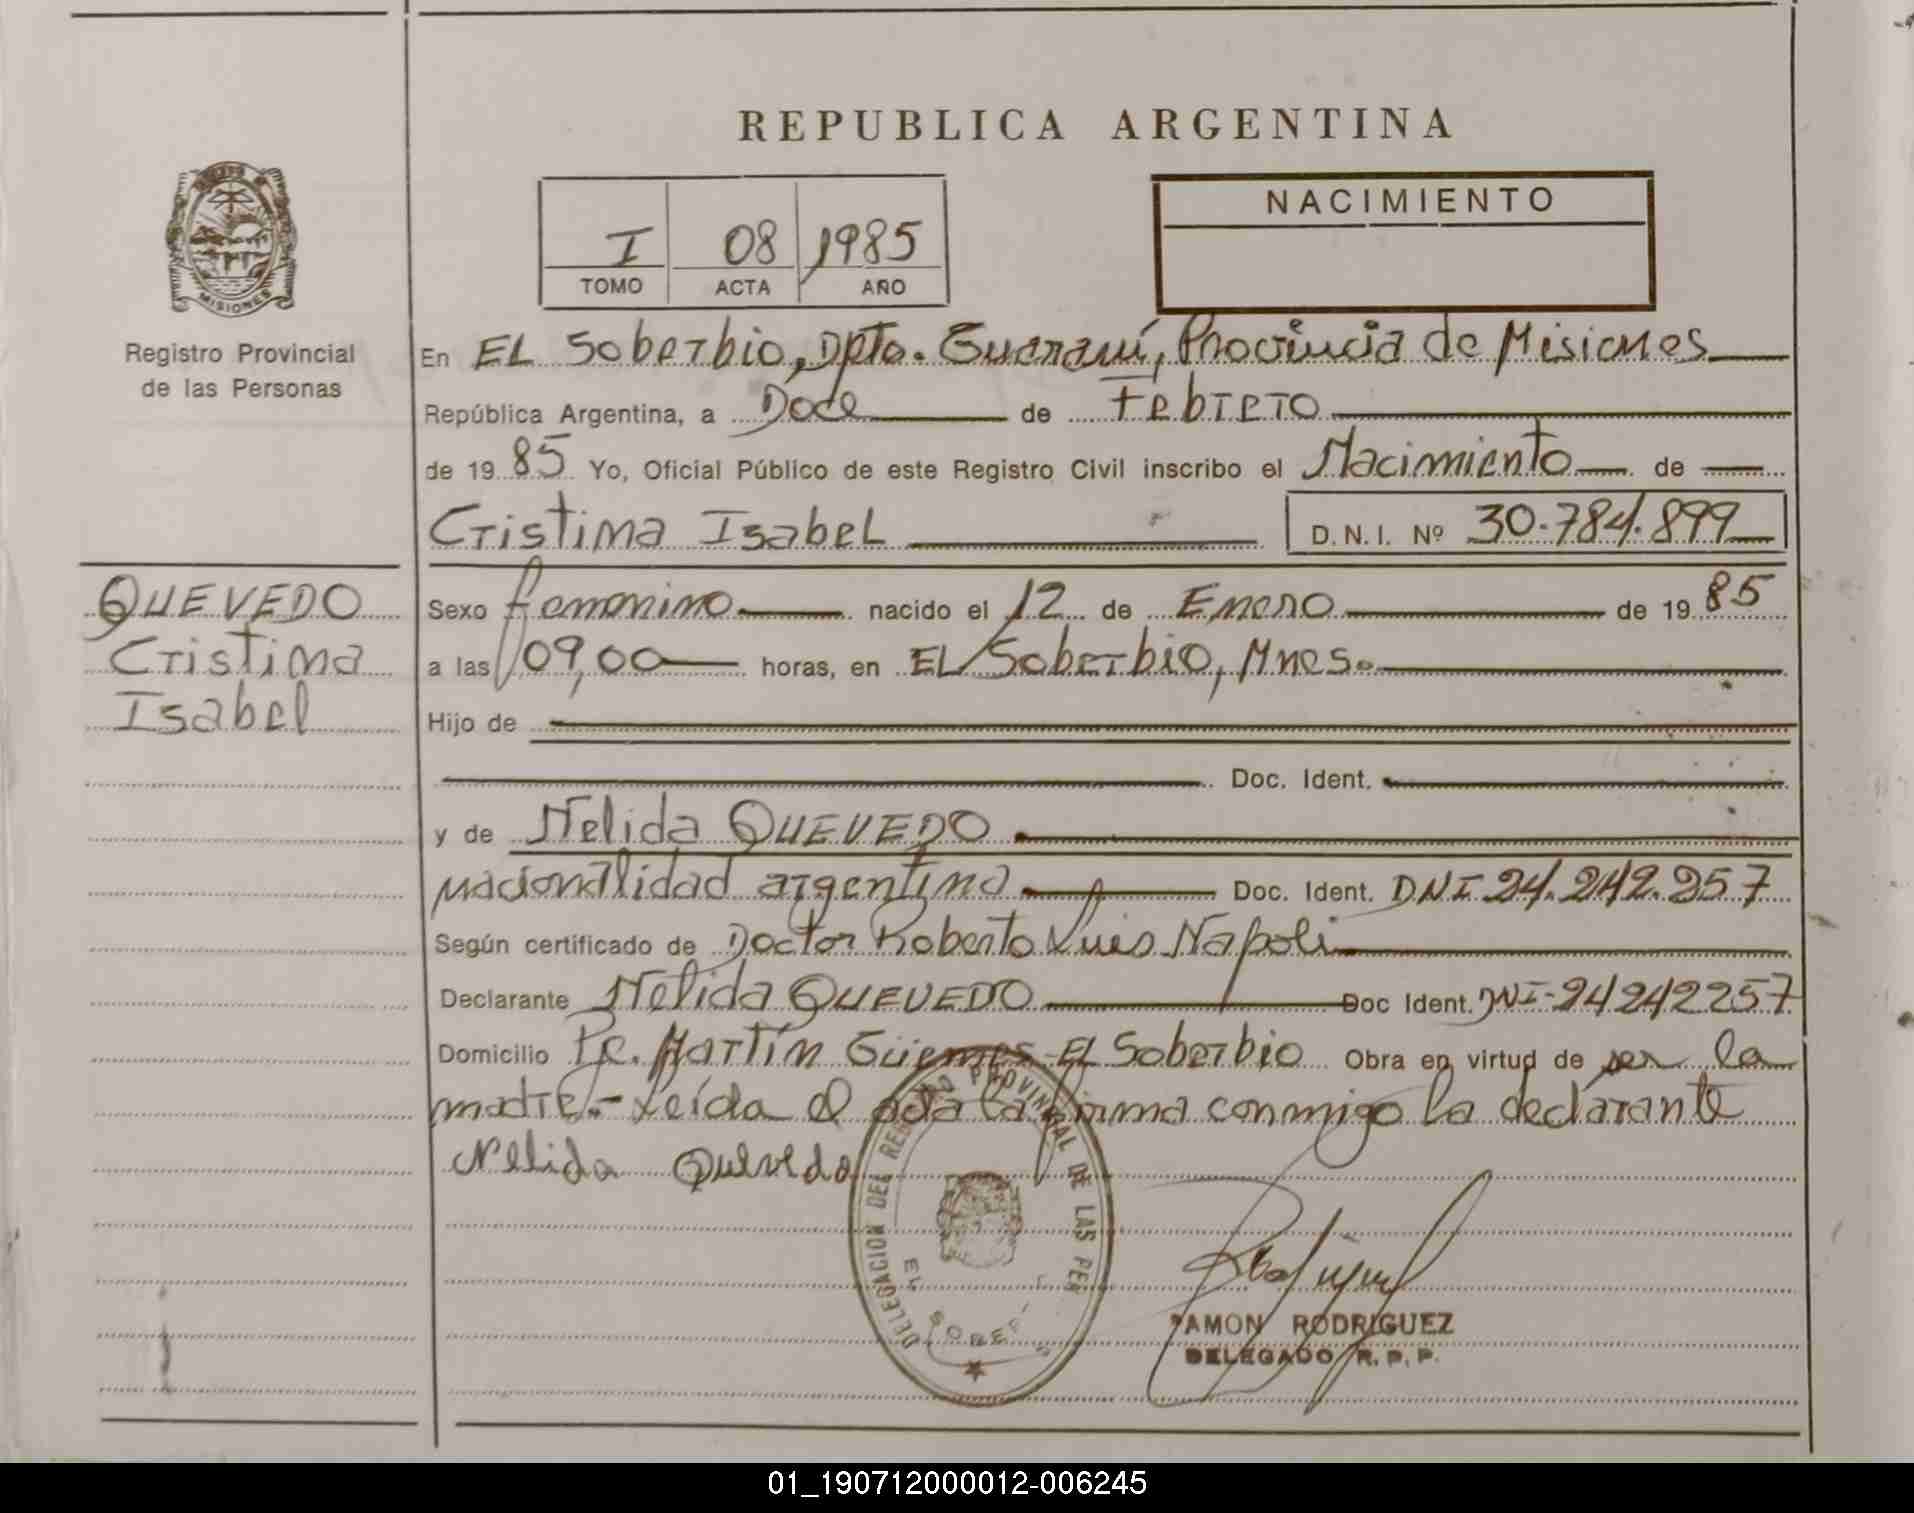 REPUBLICA ARGENTINA
I 08 1985
TOMO ACTA AÑO
NACIMIENTO
MISIONES
Registro Provincial
de las Personas
En EL Soberbio, Dpto. Guaraní, Provincia de Misiones
República Argentina, a Doce de Febrero
de 1985 Yo, Oficial Público de este Registro Civil inscribo el Nacimiento de
Cristina Isabel D.N.I. Nº 30.784.899
QUEVEDO
Cristina
Isabel
Sexo femenino nacido el 12 de Enero de 1985
a las 09,00 horas, en EL Soberbio, Mnes.
Hijo de
Doc. Ident.
y de Nelida QUEVEDO
nacionalidad argentina Doc. Ident. DNI 24.242.257
Según certificado de Doctor Roberto Luis Napoli
Declarante Nelida QUEVEDO Doc Ident. DNI-24242257
Domicilio Martín Güemes-EL Soberbio Obra en virtud de ser la
madre.- Leída el acta la firma conmigo la declarante
Nelida Quevedo
DELEGACION DEL REGISTRO PROVINCIAL DE LAS PER
EL SOBER
RAMON RODRIGUEZ
DELEGADO R. P. P.
01_190712000012-006245